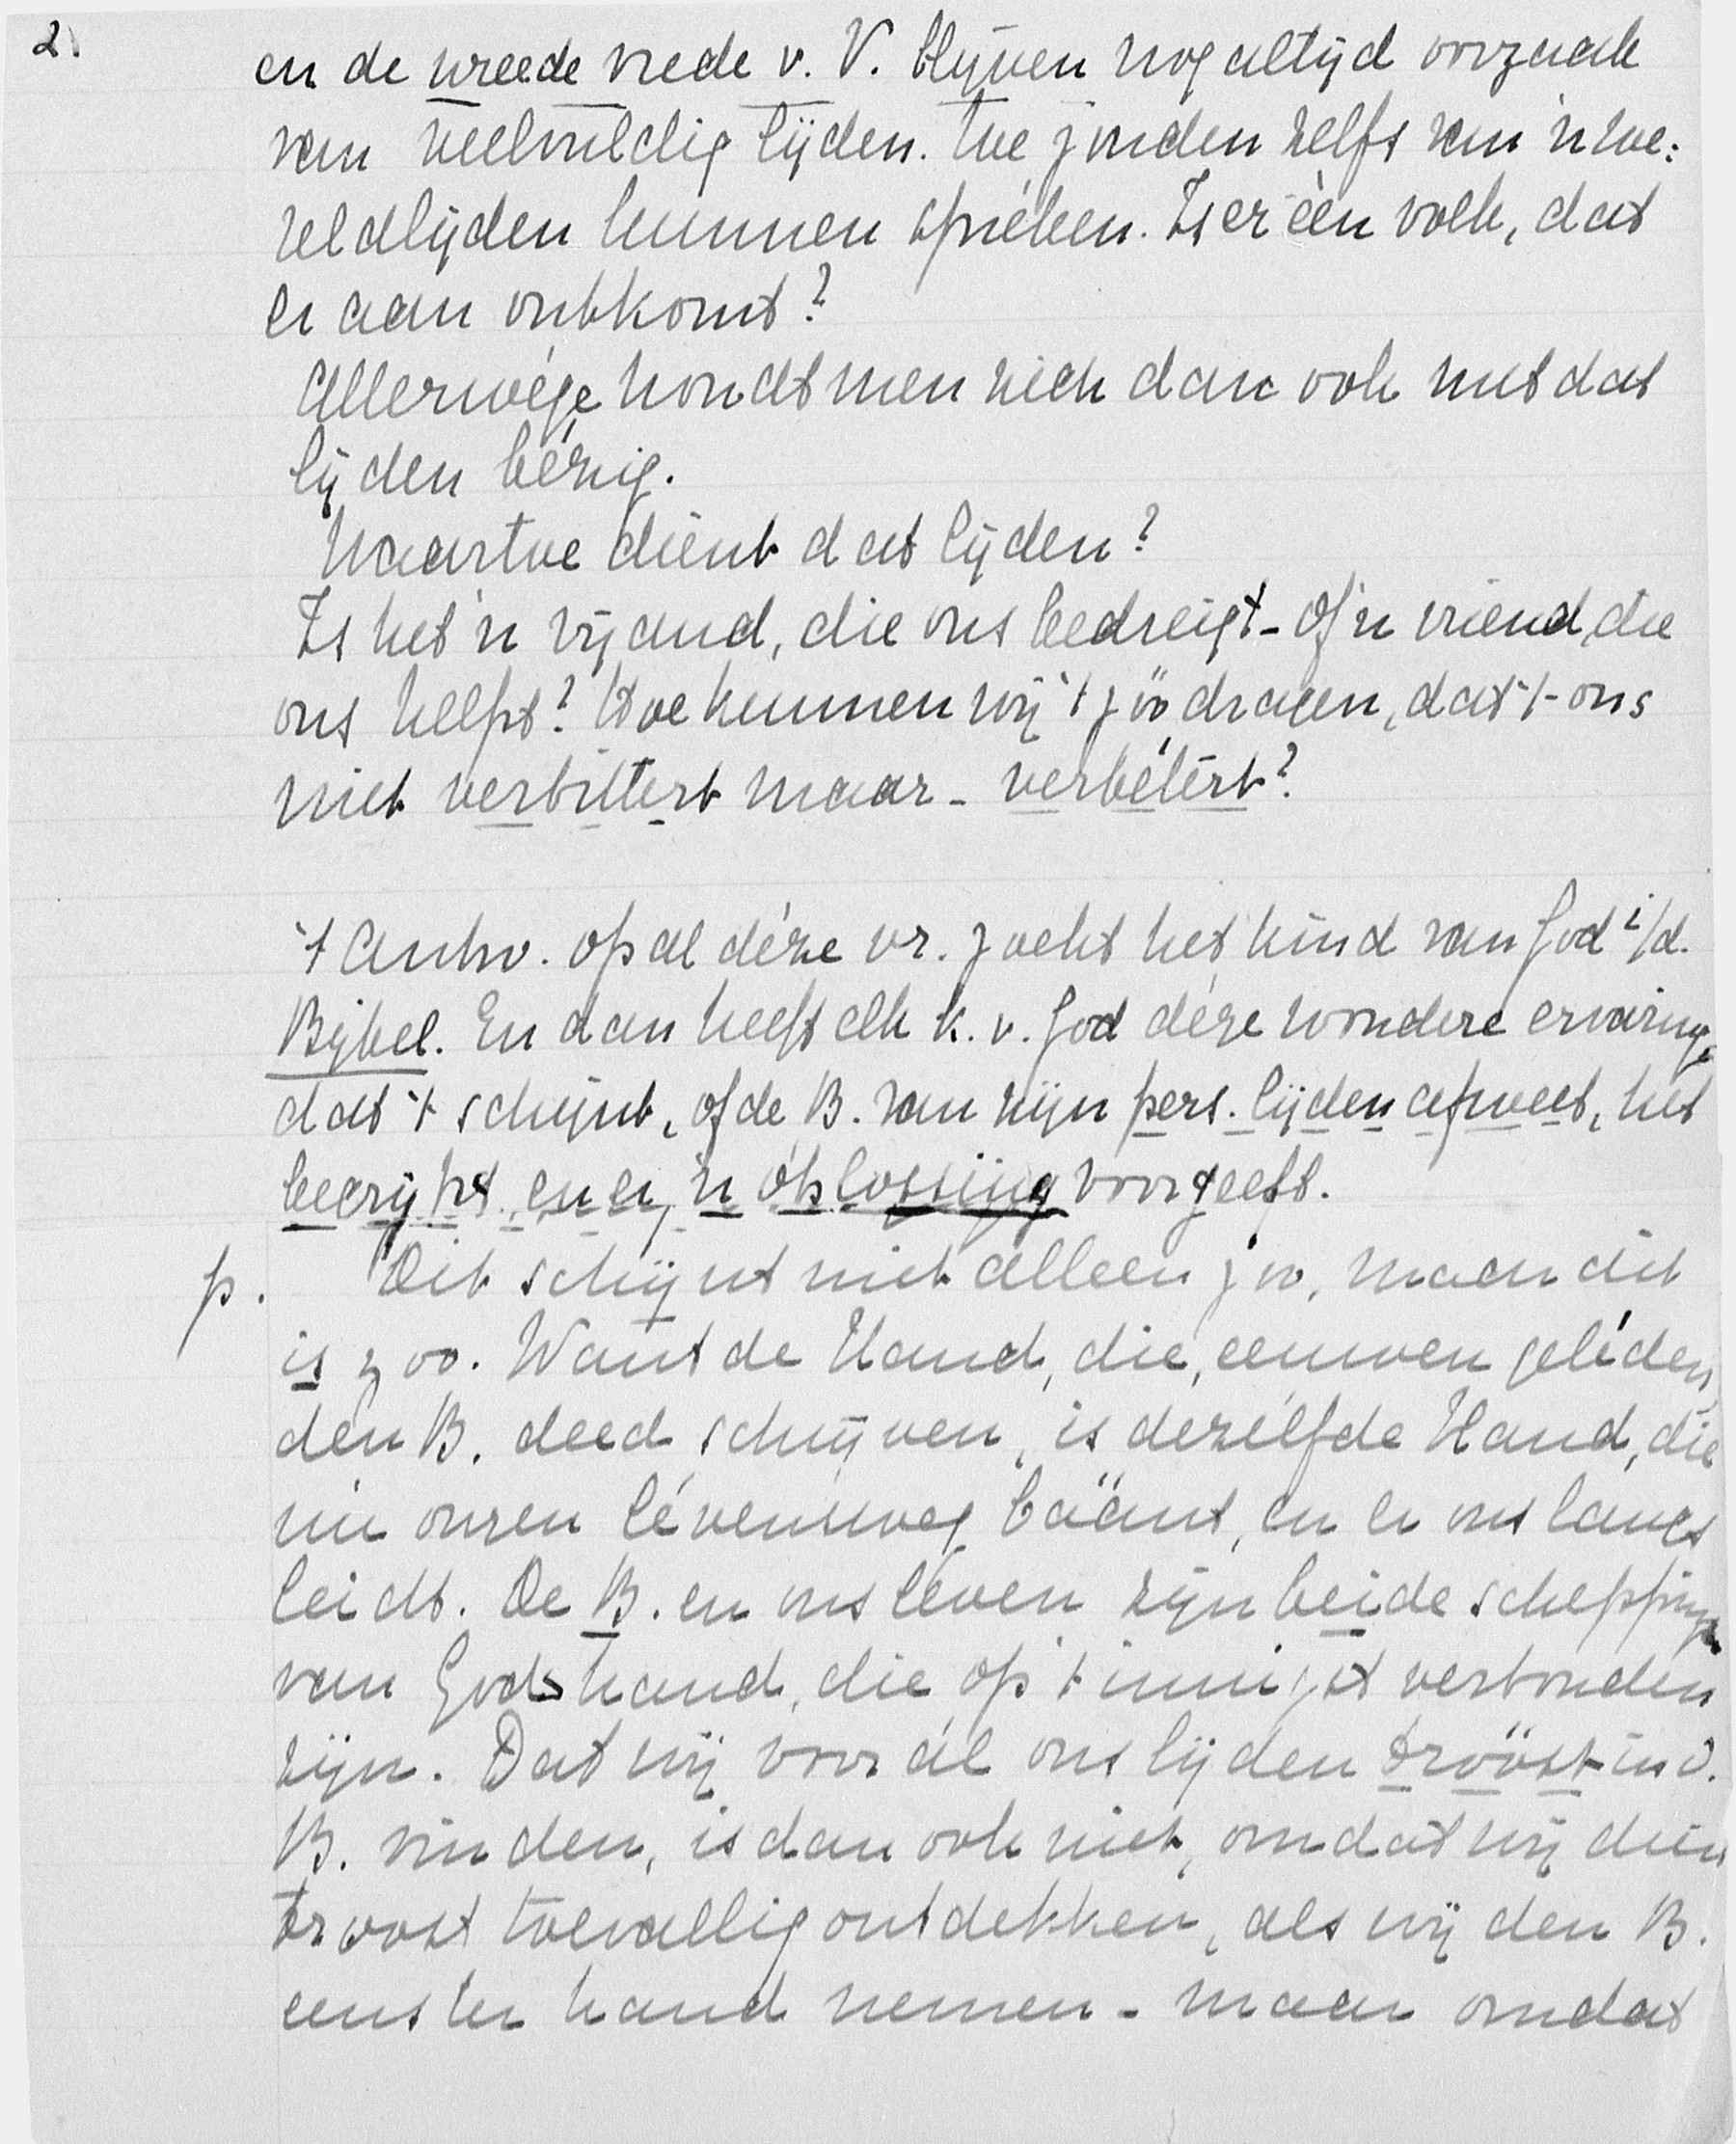 2.
en de wreede vrede v. V. blijven nog altijd oorzaak
van veelvuldig lijden. We zouden zelfs van 'n we:
reldlijden kunnen spreken. Is er één volk, dat
er aan ontkomt?
Allerwége houdt men zich dan ook met dat
lijden bézig.
Waartoe dient dat lijden?
Is het 'n vijand, die ons bedreigt - Of 'n vriend, die
ons helpt? Hoe kunnen wij 't zóó dragen, dat 't ons
niet verbittert maar - verbétert?
't Antw. op al déze vr. zoekt het kind van God i/d.
Bijbel. En dan heeft elk k. v. God déze wondere ervaring,
dat 't schijnt, of de B. van zijn pers. lijden afweet, het
begrijpt, en er 'n óplossing voor geeft.
p. Dit schijnt niet alleen zoo, maar dit
is zoo. Want de Hand, die, eeuwen geléden
den B. deed schrijven, is dezélfde Hand, die
nu onzen lévensweg baant, en er ons langs
leidt. De B. en ons leven zijn beide schepping
van Gods hand, die op 't innigst verbonden
zijn. Dat wij voor ál ons lijden tróóst in d.
B. vinden, is dan ook niet, omdat wij dien
troost toevallig ontdekken, als wij den B.
eens ter hand nemen - maar omdat